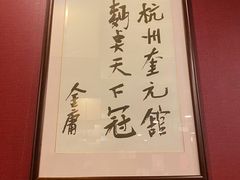 杭州奎元館
麵条天下冠
金庸